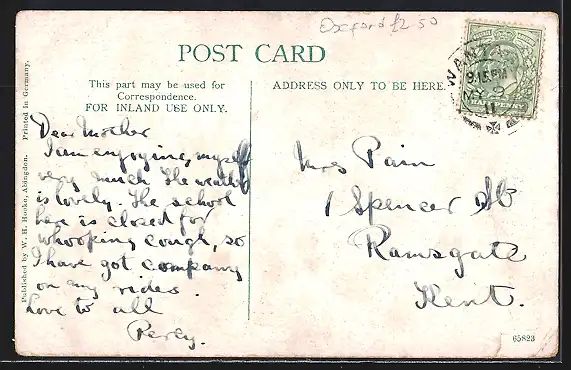 Oxford £2.50
POST CARD
This part may be used for
Correspondence.
FOR INLAND USE ONLY.
ADDRESS ONLY TO BE HERE.
WANTAGE
9.15PM
MY 9
11
Published by W. H. Hooke, Abingdon. Printed in Germany.
Dear Mother
I am enjoying myself
very much. The weather
is lovely. The school
here is closed for
whooping cough, so
I have got company
on my rides.
Love to all
Percy.
Mrs Pain
1 Spencer St
Ramsgate
Kent.
65823